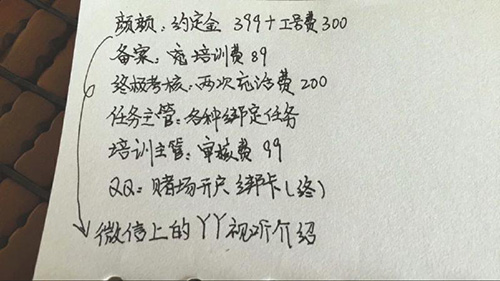 颜颜:约定金 399+工号费300
备案:充培训费89
终极考核:两次充话费200
任务主管:各种绑定任务
培训主管:审核费99
QQ:赌场开户绑卡(终)
微信上的YY视听介绍